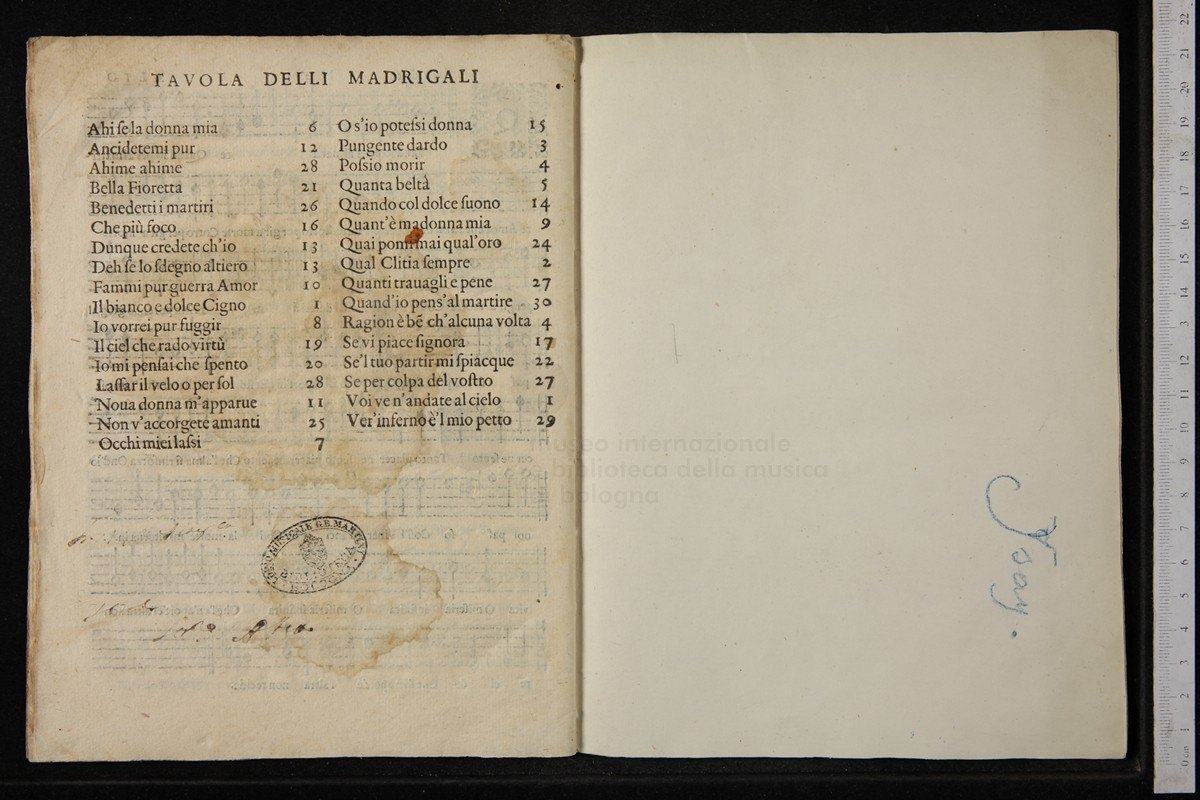 TAVOLA DELLI MADRIGALI
Ahi ſe la donna mia 6
Ancidetemi pur 12
Ahime ahime 28
Bella Fioretta 21
Benedetti i martiri 26
Che più foco 16
Dunque credete ch'io 13
Deh ſe lo ſdegno altiero 13
Fammi pur guerra Amor 10
Il bianco e dolce Cigno 1
Io vorrei pur fuggir 8
Il ciel che rado virtù 19
Io mi penſai che ſpento 20
Laſſar il velo o per ſol 28
Noua donna m'apparue 11
Non v'accorgete amanti 25
Occhi miei laſsi 7
O s'io poteſsi donna 15
Pungente dardo 3
Poſsio morir 4
Quanta beltà 5
Quando col dolce ſuono 14
Quant'è madonna mia 9
Quai pomi mai qual'oro 24
Qual Clitia ſempre 2
Quanti trauagli e pene 27
Quand'io pens'al martire 30
Ragion è bē ch'alcuna volta 4
Se vi piace ſignora 17
Se'l tuo partir mi ſpiacque 22
Se per colpa del voſtro 27
Voi ve n'andate al cielo 1
Ver'inferno è'l mio petto 29
museo internazionale
biblioteca della musica
di bologna